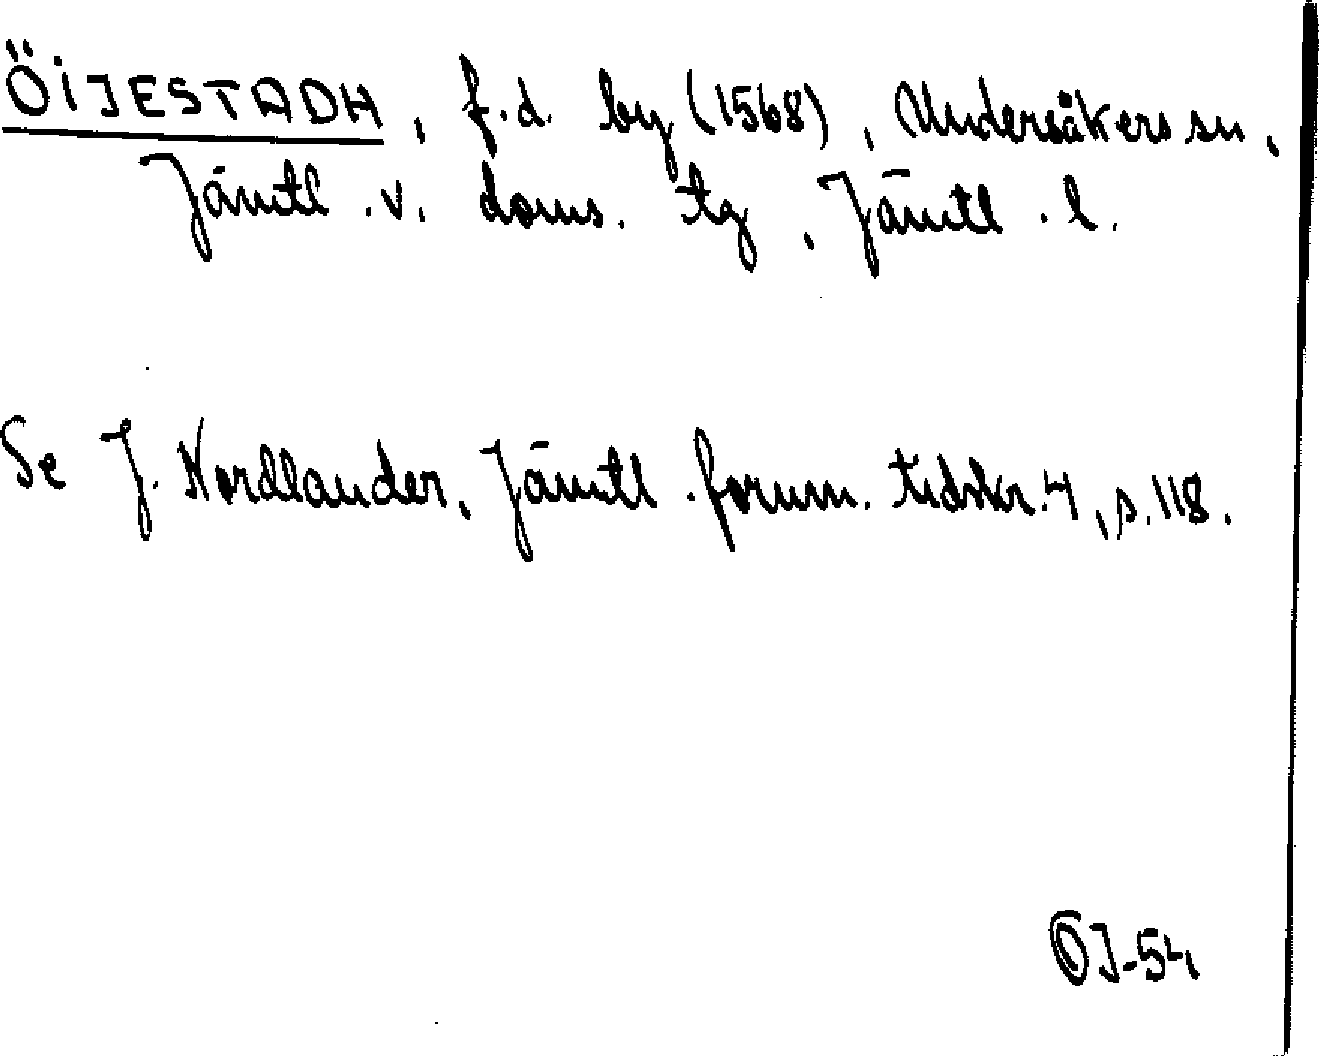 ÖIJESTADH, f.d. by (1568), Undersåkers sn,
Jämtl. v. doms. tg, Jämtl. l.
Se J. Nordlander, Jämtl. fornm. tidskr. 4, s. 118.
ÖJ-54